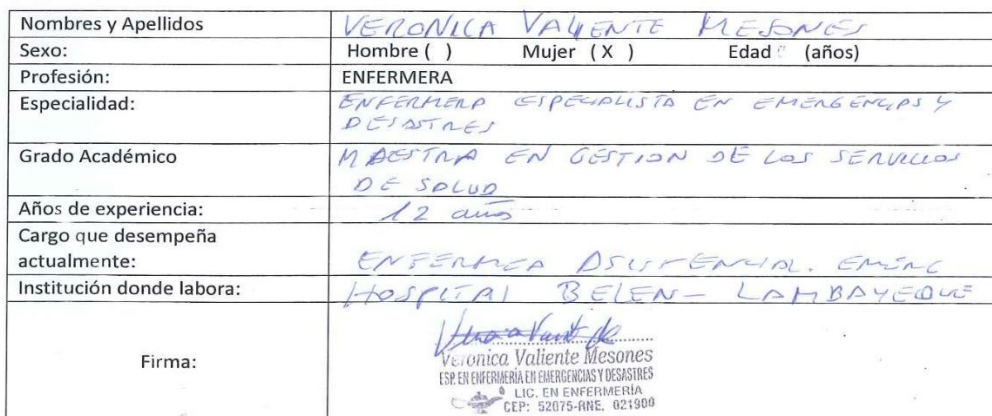 Nombres y Apellidos VERONICA VALIENTE MESONES
Sexo: Hombre ( ) Mujer ( X ) Edad (años)
Profesión: ENFERMERA
Especialidad: ENFERMERA ESPECIALISTA EN EMERGENCIAS Y
DESASTRES
Grado Académico MAESTRA EN GESTION DE LOS SERVICIOS
DE SALUD
Años de experiencia: 12 años
Cargo que desempeña
actualmente: ENFERMERA ASISTENCIAL. EMERG
Institución donde labora: HOSPITAL BELEN - LAMBAYEQUE
Firma:
Veronica Valiente Mesones
ESP. EN ENFERMERÍA EN EMERGENCIAS Y DESASTRES
LIC. EN ENFERMERÍA
CEP: 52075-RNE. 021900